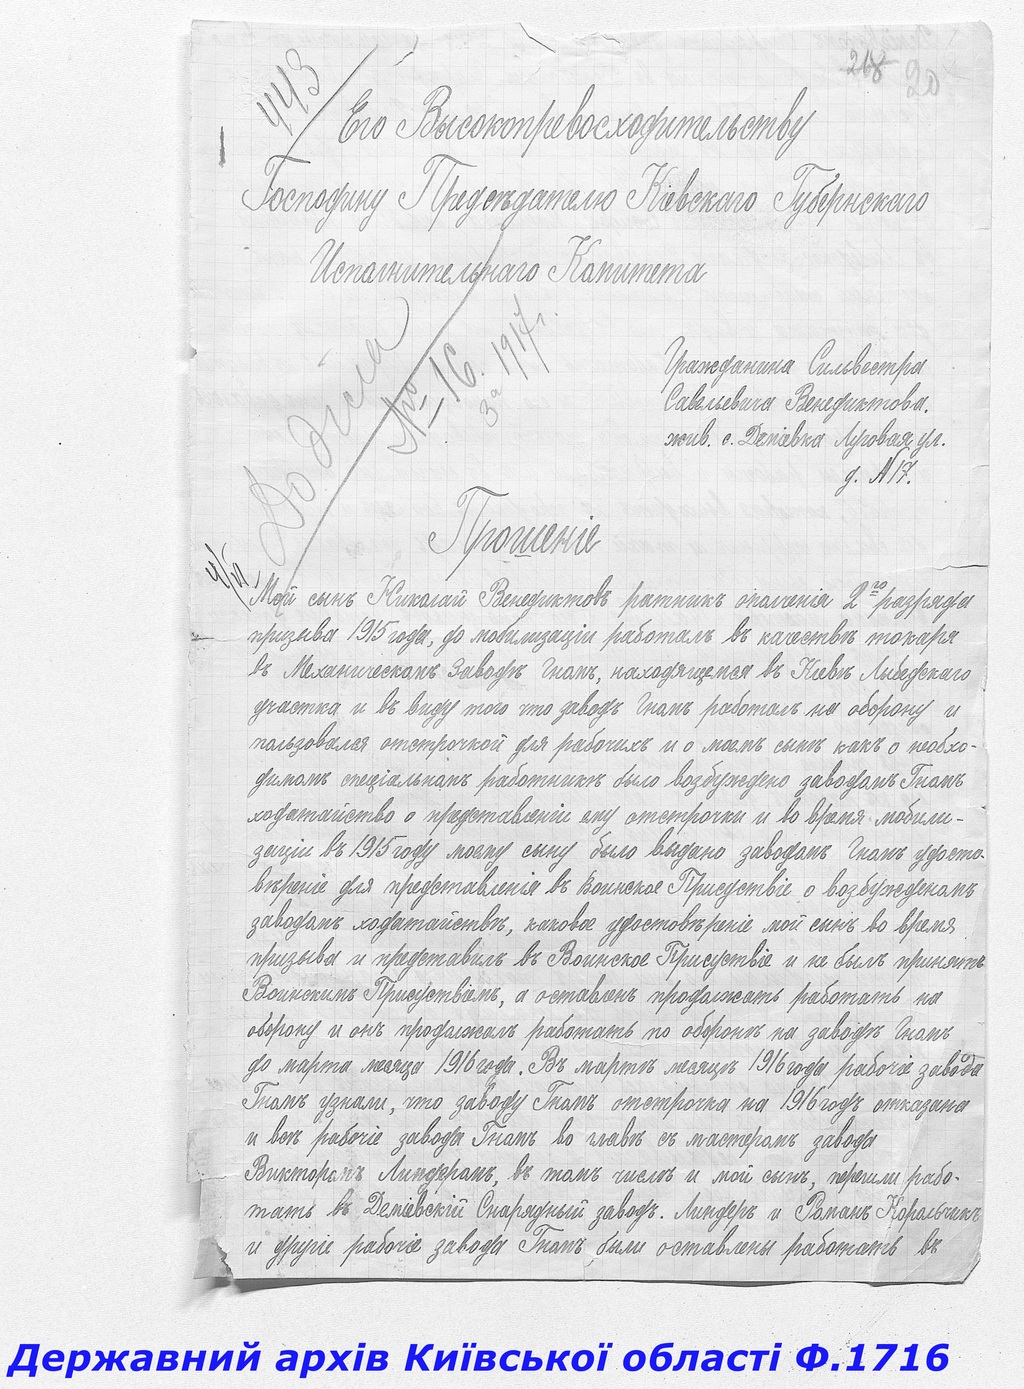 443
218 20
Его Высокопревосходительству
Господину Предсѣдателю Кіевскаго Губернскаго
Исполнительнаго Комитета
До дѣла
№ 16. 1917 г.
за
Гражданина Сильвестра
Савельевича Венедиктова.
жив. с. Деміевка Луговая ул.
д. №17.
Прошеніе
Мой сынъ Николай Венедиктовъ ратникъ ополченія 2го разряда
призыва 1915 года, до мобилизаціи работалъ въ качествѣ токаря
въ Механическомъ Заводѣ Гнамъ, находящемся въ Кіевѣ Лыбедскаго
участка и въ виду того что заводъ Гнамъ работалъ на оборону и
пользовался отстрочкой для рабочихъ и о моемъ сынѣ какъ о необхо-
димомъ спеціальномъ работникѣ было возбуждено заводомъ Гнамъ
ходатайство о представленіи ему отстрочки и во время мобили-
заціи въ 1915 году моему сыну было выдано заводомъ Гнамъ удосто-
вѣреніе для представленія въ Воинское Присуствіе о возбужденомъ
заводомъ ходатайствѣ, каковое удостовѣреніе мой сынъ во время
призыва и представилъ въ Воинское Присуствіе и не былъ принятъ
Воинскимъ Присуствіемъ, а оставленъ продолжать работать на
оборону и онъ продолжалъ работать по оборонѣ на заводѣ Гнамъ
до марта месяца 1916 года. Въ мартѣ месяцѣ 1916 года рабочіе завода
Гнамъ узнали, что заводу Гнамъ отстрочка на 1916 годъ отказана
и всѣ рабочіе завода Гнамъ во главѣ съ мастеромъ завода
Викторомъ Линдромъ, въ томъ числѣ и мой сынъ, перешли рабо-
тать въ Деміевскій Снарядный заводъ. Линдеръ и Романъ Корольчикъ
и другіе рабочіе завода Гнамъ были оставлены работать въ
Державний архів Київської області Ф.1716